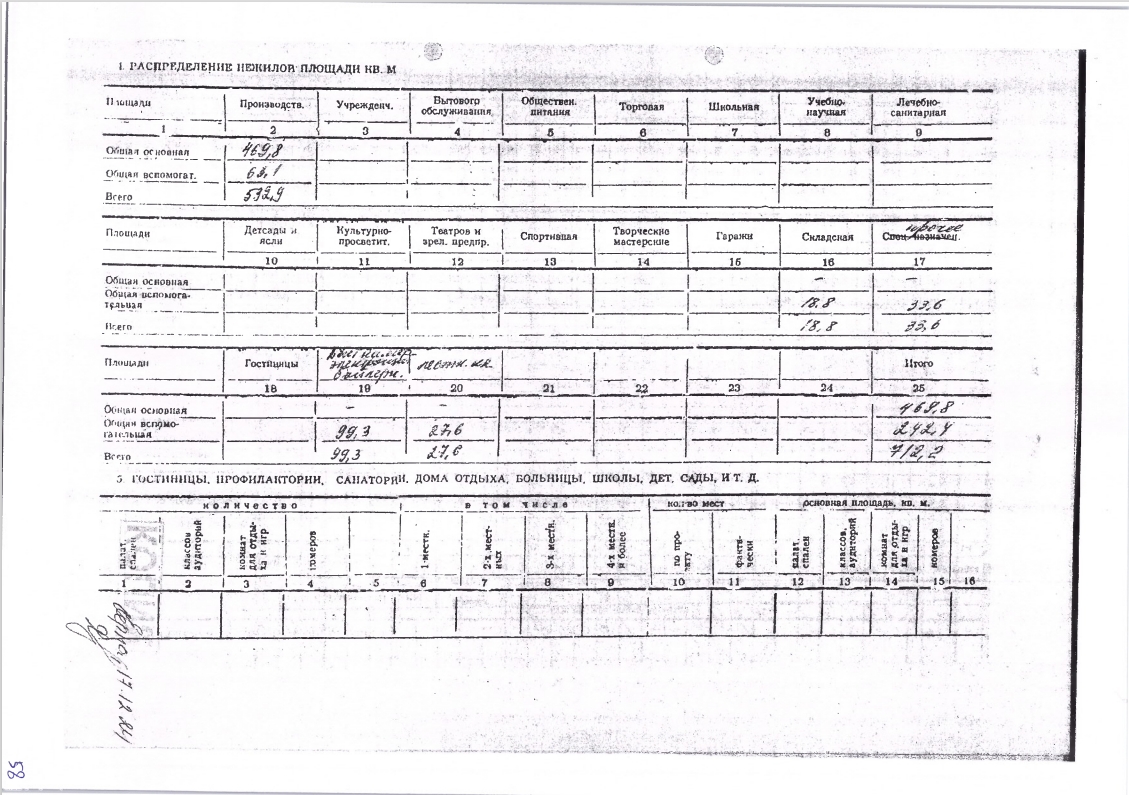 1. РАСПРЕДЕЛЕНИЕ НЕЖИЛОЙ ПЛОЩАДИ КВ. М
Площади Производств. Учрежденч. Бытового обслуживания Обществен. питания Торговая Школьная Учебно-научная Лечебно-санитарная
1 2 3 4 5 6 7 8 9
Общая основная 469,8
Общая вспомогат. 63,1
Всего 532,9
Площади Детсады и ясли Культурно-просветит. Театров и зрел. предпр. Спортивная Творческие мастерские Гаражи Складская Спец. назначен. прочее
10 11 12 13 14 15 16 17
Общая основная – –
Общая вспомогательная 18,8 33,6
Всего 18,8 33,6
Площади Гостиницы лестн. кл. Итого
18 19 20 21 22 23 24 25
Общая основная – – 469,8
Общая вспомогательная 99,3 27,6 242,4
Всего 99,3 27,6 712,2
5. ГОСТИНИЦЫ, ПРОФИЛАКТОРИИ, САНАТОРИИ, ДОМА ОТДЫХА, БОЛЬНИЦЫ, ШКОЛЫ, ДЕТ. САДЫ, И Т. Д.
количество в том числе кол-во мест основная площадь, кв. м.
палат, спален классов аудиторий комнат для отдыха и игр номеров 1-местн. 2-х местных 3-х местн. 4-х местн. и более по проекту фактически палат, спален классов, аудиторий комнат для отдыха и игр номеров
1 2 3 4 5 6 7 8 9 10 11 12 13 14 15 16
КОПИЯ
верна, 17.12.24
85